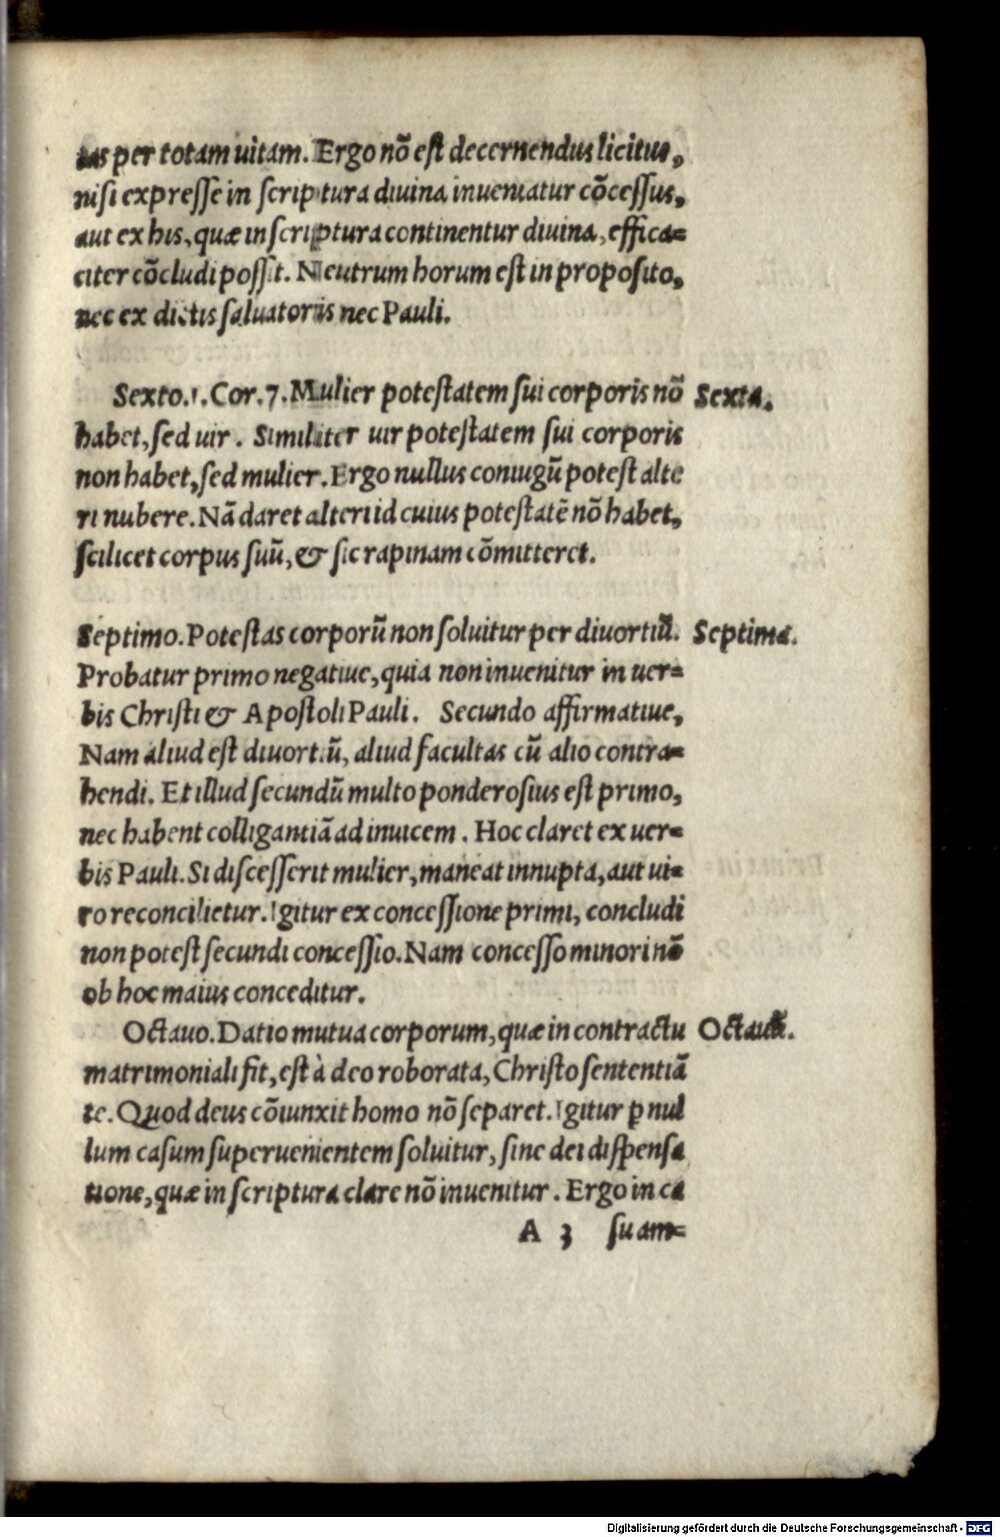 tas per totam uitam. Ergo nõ est decernendus licitus,
nisi expresse in scriptura diuina inueniatur cõcessus,
aut ex his, quæ in scriptura continentur diuina, effica=
citer cõcludi possit. Neutrum horum est in proposito,
nec ex dictis saluatoris nec Pauli.
Sexto. 1. Cor. 7. Mulier potestatem sui corporis nõ Sexta.
habet, sed uir. Similiter uir potestatem sui corporis
non habet, sed mulier. Ergo nullus coniugũ potest alte
ri nubere. Nã daret alteri id cuius potestatẽ nõ habet,
scilicet corpus suũ, & sic rapinam cõmitteret.
Septimo. Potestas corporũ non soluitur per diuortiũ. Septima.
Probatur primo negatiue, quia non inuenitur in uer=
bis Christi & Apostoli Pauli. Secundo affirmatiue,
Nam aliud est diuortiũ, aliud facultas cũ alio contra=
hendi. Et illud secundũ multo ponderosius est primo,
nec habent colligantiã ad inuicem. Hoc claret ex uer=
bis Pauli. Si discesserit mulier, maneat innupta, aut ui=
ro reconcilietur. Igitur ex concessione primi, concludi
non potest secundi concessio. Nam concesso minori nõ
ob hoc maius conceditur.
Octauo. Datio mutua corporum, quæ in contractu Octaua.
matrimoniali fit, est à deo roborata, Christo sententiã
te. Quod deus cõiunxit homo nõ separet. Igitur ꝑ nul
lum casum superuenientem soluitur, sine dei dispensa
tione, quæ in scriptura clare nõ inuenitur. Ergo in ca
A 3 su am=
Digitalisierung gefördert durch die Deutsche Forschungsgemeinschaft - DFG